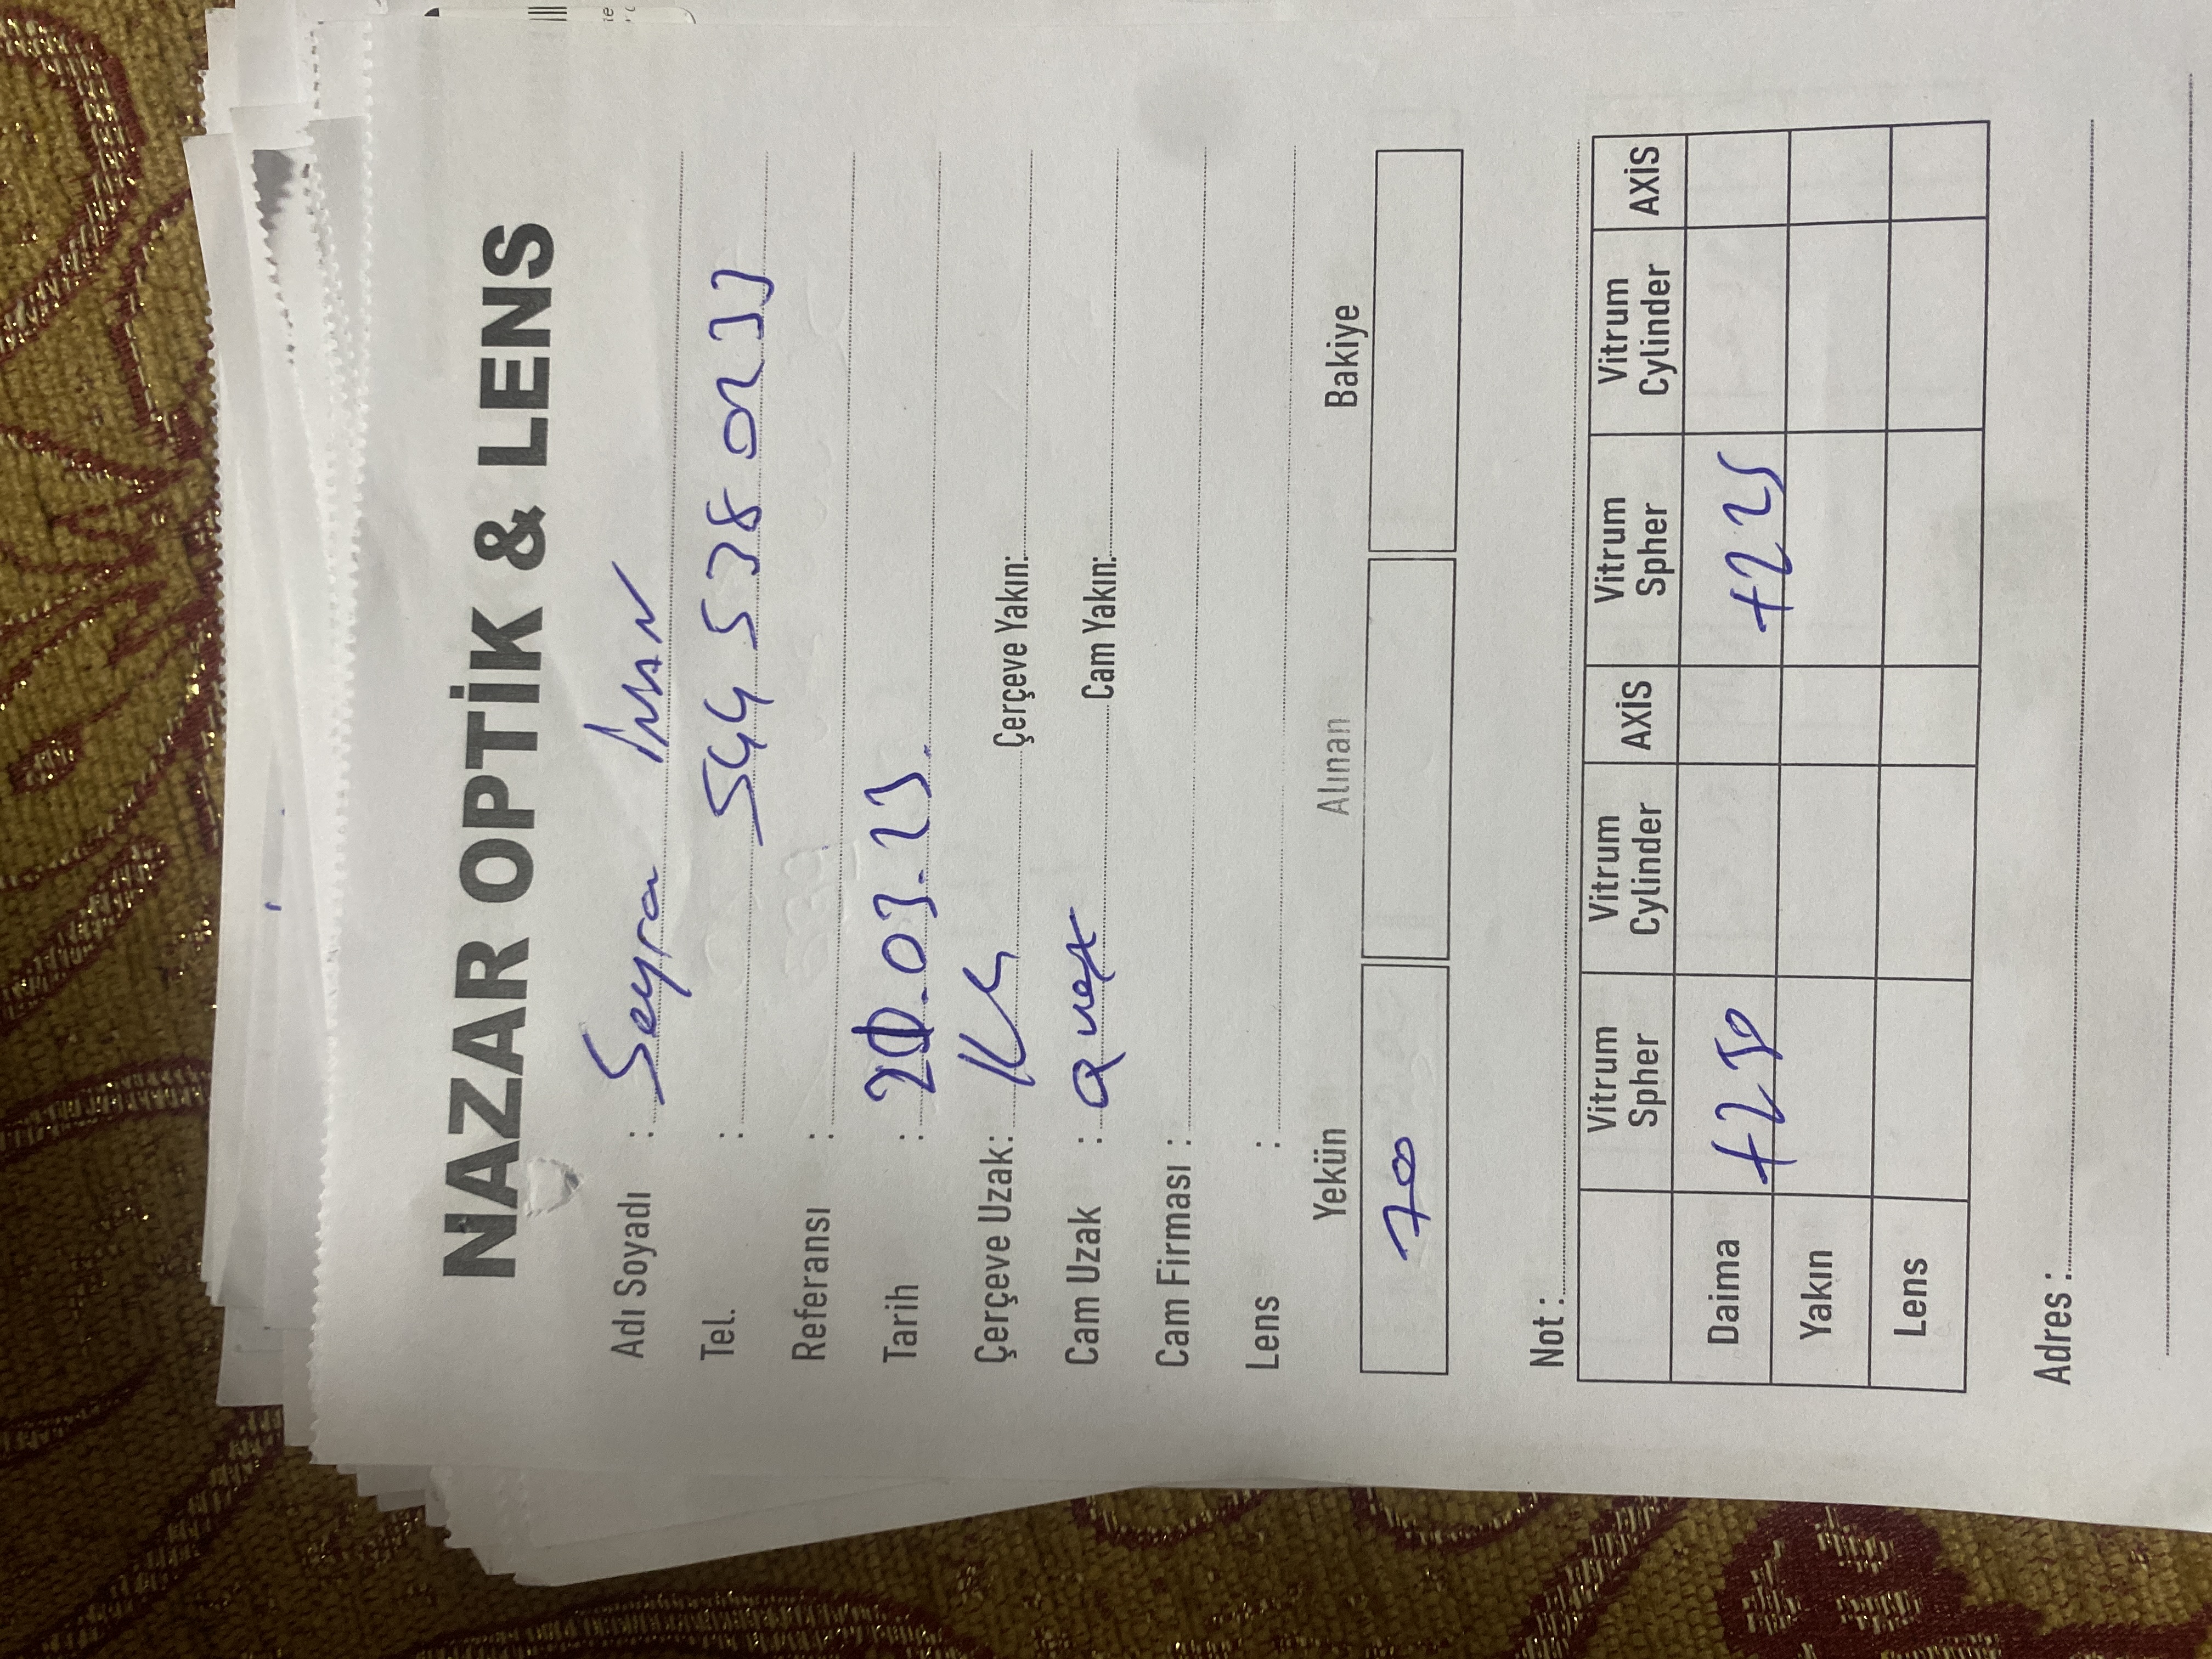 NAZAR OPTİK & LENS
Adı Soyadı : Seyra İNAN
Tel. : 544 538 02 33
Referansı :
Tarih : 21.03.23.
Çerçeve Uzak: Çerçeve Yakın:
Cam Uzak : Cam Yakın:
Cam Firması :
Lens :
Yekün Alınan Bakiye
700
Not :
Vitrum Spher Vitrum Cylinder AXİS Vitrum Spher Vitrum Cylinder AXİS
Daima +250 +225
Yakın
Lens
Adres :